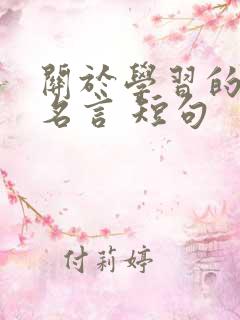 關於學習的
名言 短句
付莉婷